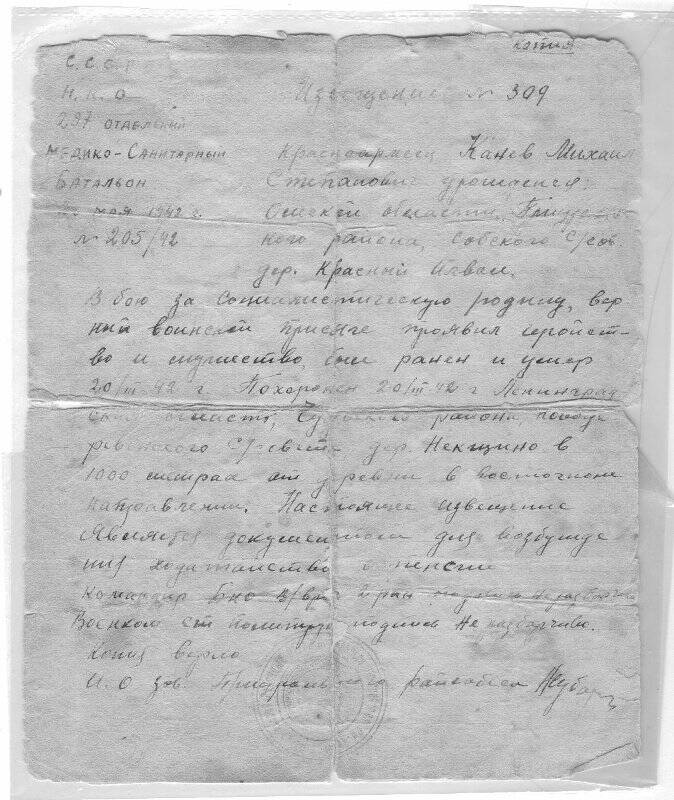 копия
С.С.С.Р
Н.К.О
297 отдельный
медико-санитарный
батальон
мая 1942 г.
№ 205/42
Извещение № 309
Красноармеец Канев Михаил
Степанович урожденец:
Омской области,
кого района, Собского с/сов.
дер. Красный
В бою за социалистическую родину, вер
ный воинской присяге проявил геройст-
во и мужество, был ранен и умер
20/III 42 г Похоронен 20/III 42 г Ленинград
ской области, района,
с/совета дер. Некшино в
1000 метрах от деревни в восточном
направлении. Настоящее извещение
является документом для возбужде
ния ходатайства о пенсии
Командир подпись неразборчива
Военком ст политрук подпись неразборчиво.
Копия верна
И.О зав. Приуральского райсобеса